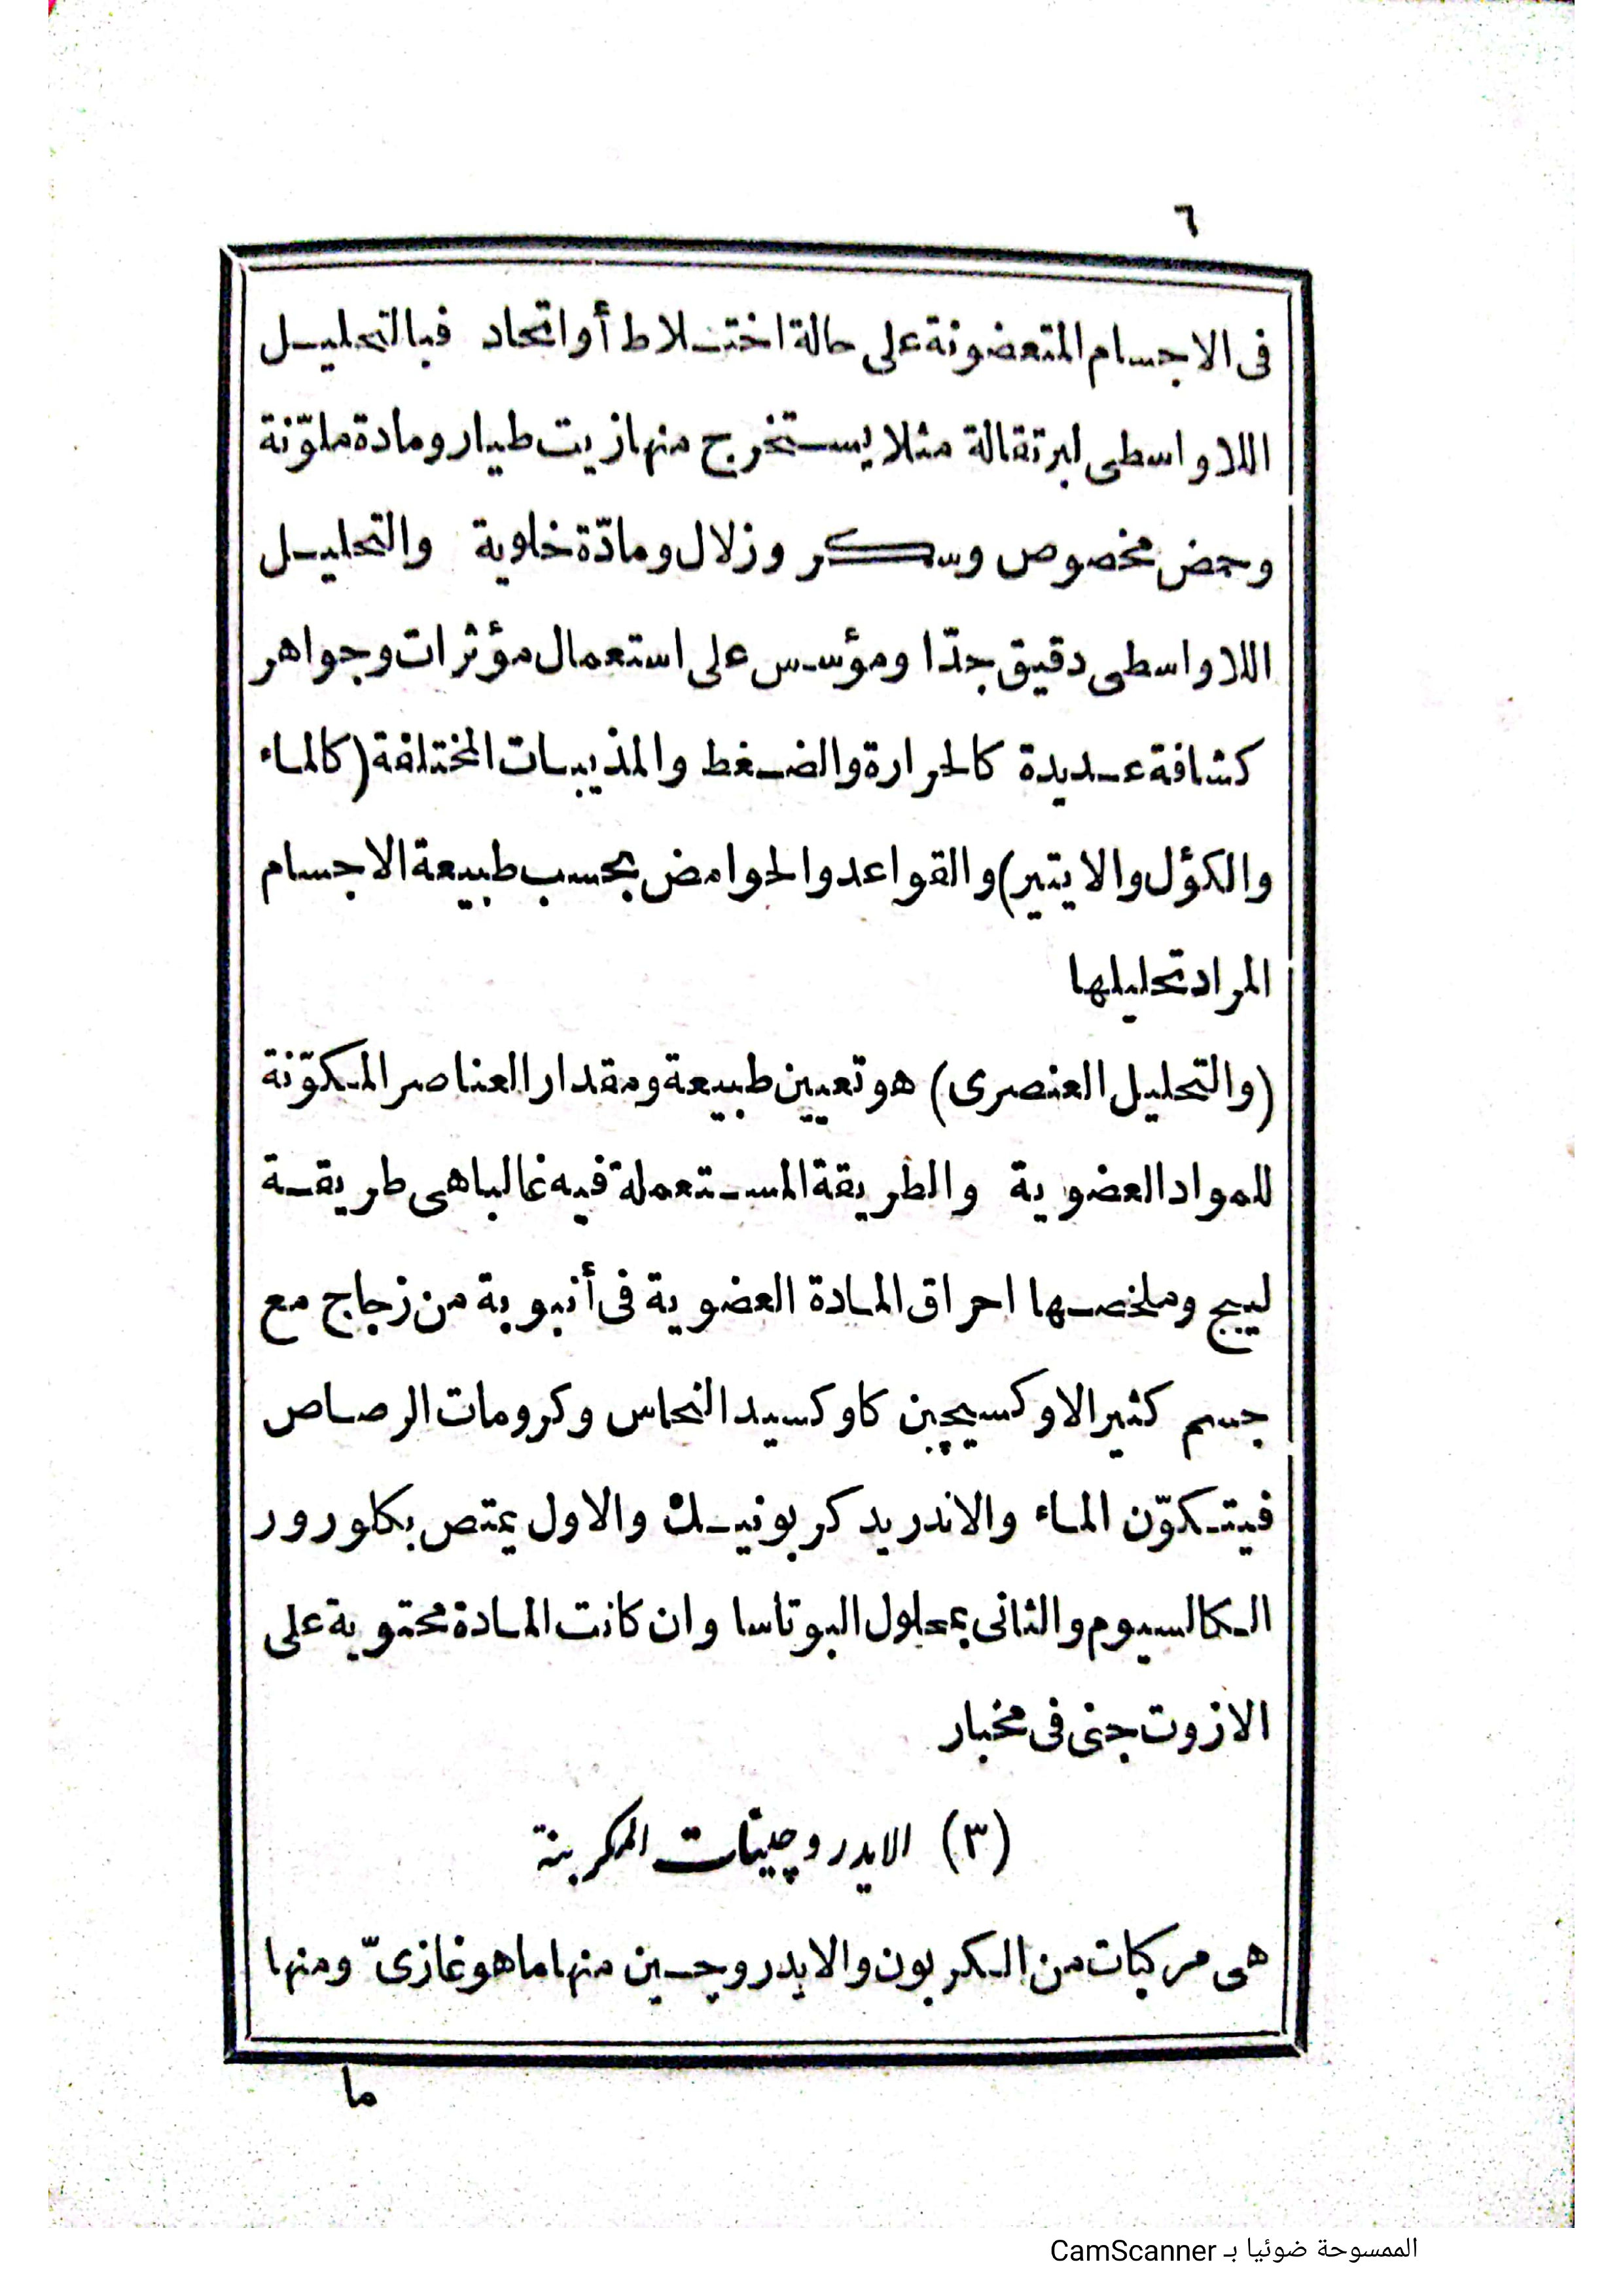 ٦
فى الاجسام المتعضونة على حالة اختلاط أو اتحاد فبالتحليل
اللاواسطى لبرتقالة مثلا يستخرج منها زيت طيار ومادة ملوّنة
وحمض مخصوص وسكر وزلال ومادّة خلوية والتحليل
اللاواسطى دقيق جدّا ومؤسس على استعمال مؤثرات وجواهر
كشافة عديدة كالحرارة والضغط والمذيبات المختلفة (كالماء
والكؤل والايتير) والقواعد والحوامض بحسب طبيعة الاجسام
المراد تحليلها
(والتحليل العنصرى) هو تعيين طبيعة ومقدار العناصر المكوّنة
للمواد العضوية والطريقة المستعملة فيه غالبا هى طريقة
ليبج وملخصها احراق المادة العضوية فى أنبوبة من زجاج مع
جسم كثير الاوكسيچين كاوكسيد النحاس وكرومات الرصاص
فيتكوّن الماء والاندريد كربونيك والاول يمتص بكلورور
الكالسيوم والثانى بمحلول البوتاسا وان كانت المادة محتوية على
الازوت جنى فى مخبار
(٣) الايدروچينات المكربنة
هى مركبات من الكربون والايدروچين منها ما هو غازىّ ومنها
ما
الممسوحة ضوئيا بـ CamScanner